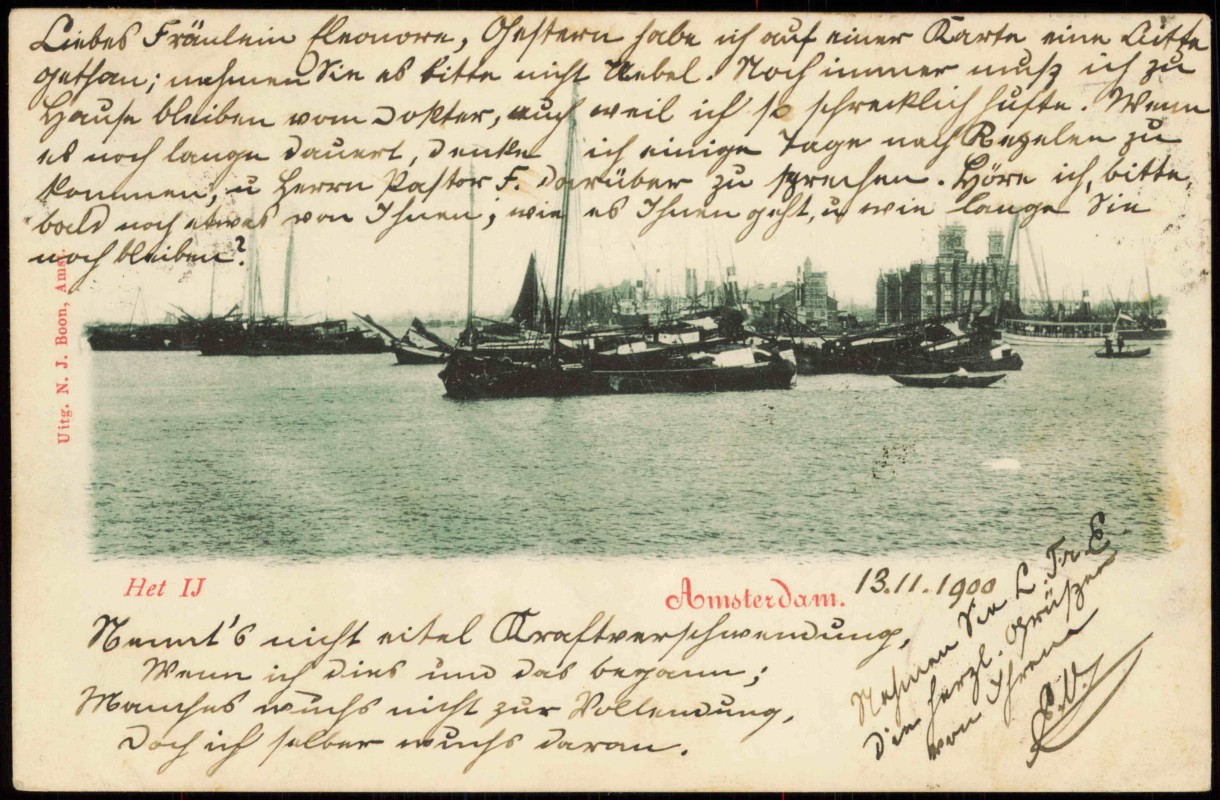 Liebes Fräulein Eleonore, Gestern habe ich auf einer Karte eine Bitte
gethan; nehmen Sie es bitte nicht Uebel. Noch immer muß ich zu
Hause bleiben vom Dokter, auch weil ich so schrecklich hufte. Wenn
es noch lange dauert, denke ich einige Tage nach zu
kommen, u Herrn Pastor F. darüber zu sprechen. Höre ich, bitte,
bald noch etwas von Ihnen; wie es Ihnen geht, u wie lange Sie
noch bleiben?
Uitg. N. J. Boon, Amst.
Het IJ
Amsterdam.
13.11.1900
Nennt's nicht eitel Kraftverschwendung,
Wenn ich dies und das begann;
Manches wuchs nicht zur Vollendung,
Doch ich selber wuchs daran.
Nehmen Sie L. Fr. E.
die herzl. Grüße
von Ihrem